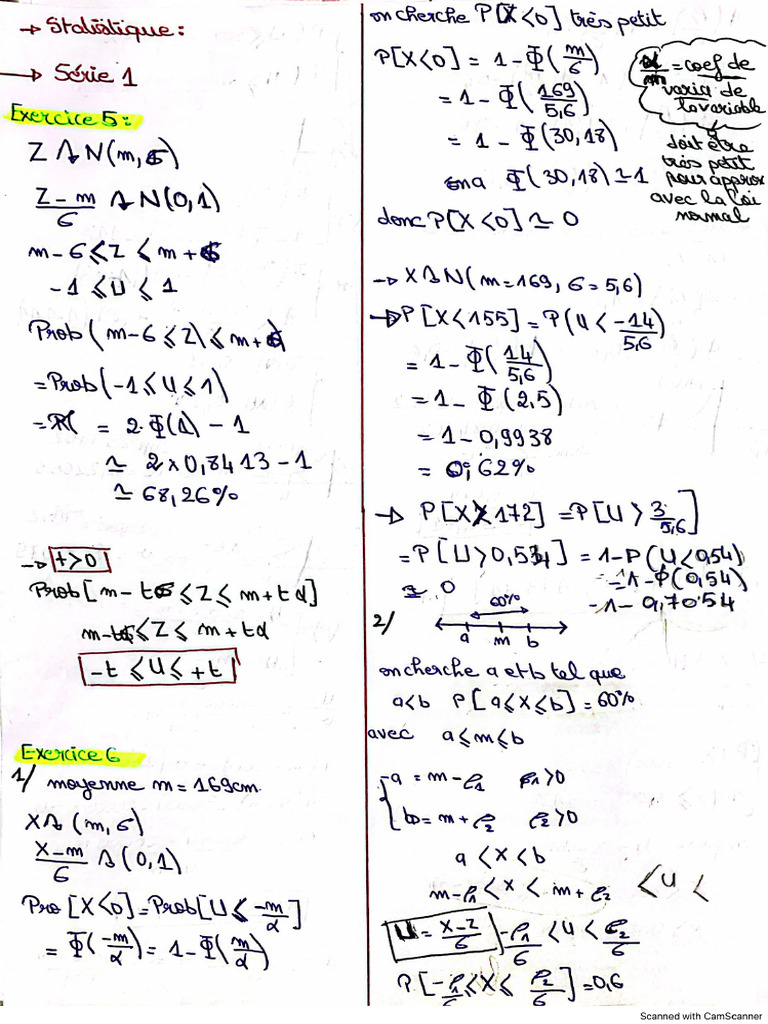 → Statistique :
→ Série 1
Exercice 5 :
Z ↝ N(m, σ)
Z-m/σ ↝ N(0,1)
m-σ ≤ Z ≤ m+σ
-1 ≤ U ≤ 1
Prob(m-σ ≤ Z ≤ m+σ)
= Prob(-1 ≤ U ≤ 1)
= 2.Φ(1) - 1
≃ 2×0,8413 - 1
≃ 68,26%
→ t>0
Prob[m-tσ ≤ Z ≤ m+tσ]
m-tσ ≤ Z ≤ m+tσ
-t ≤ U ≤ +t
Exercice 6
1/ moyenne m = 169cm
X ↝ (m, σ)
X-m/σ ↝ (0,1)
Pro[X<0] = Prob[U ≤ -m/σ]
= Φ(-m/σ) = 1-Φ(m/σ)
on cherche P[X<0] très petit
P[X<0] = 1-Φ(m/σ)
= 1-Φ(169/5,6)
= 1-Φ(30,18)
on a Φ(30,18) ≃ 1
donc P[X<0] ≃ 0
σ/m = coef de
varia de
la variable
doit être
très petit
pour approx
avec la loi
normal
→ X ↝ N(m=169, σ=5,6)
→ P[X<155] = P(U < -14/5,6)
= 1-Φ(14/5,6)
= 1-Φ(2,5)
= 1-0,9938
= 0,62%
→ P[X>172] = P[U > 3/5,6]
= P[U>0,54] = 1-P(U<0,54)
= 1-Φ(0,54)
≃ 0
-1- 0,7054
2/
60%
a m b
on cherche a et b tel que
a<b P[a≤X≤b] = 60%
avec a≤m≤b
a = m-ρ₁ ρ₁>0
b = m+ρ₂ ρ₂>0
a < X < b
m-ρ₁ < X < m+ρ₂
<U<
U = X-Z/σ -ρ₁/σ < U < ρ₂/σ
P[-ρ₁/σ ≤ X ≤ ρ₂/σ] = 0,6
Scanned with CamScanner